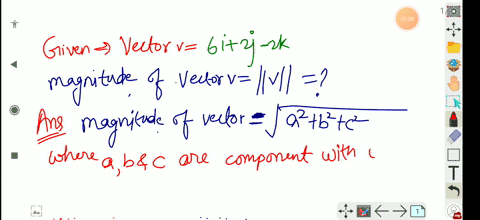 Given → Vector v = 6i+2j-2k
magnitude of vector v = ||v|| = ?
Ans magnitude of vector = √a²+b²+c²
where a, b & c are component with